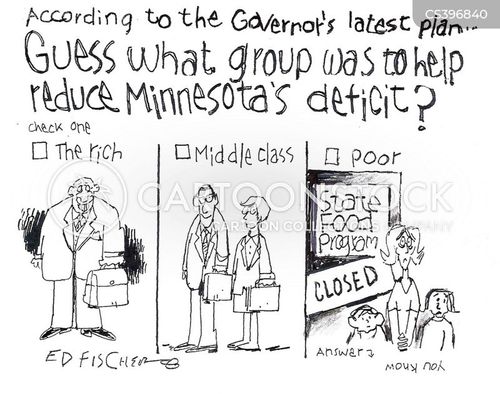 CS396840
According to the Governor's latest plan...
Guess what group was to help
reduce Minnesota's deficit?
check one
The rich
Middle class
poor
CARTOONSTOCK
CARTOON COLLECTIONS COMPANY
State
Food
Program
CLOSED
ED FISCHER
Answer
you know